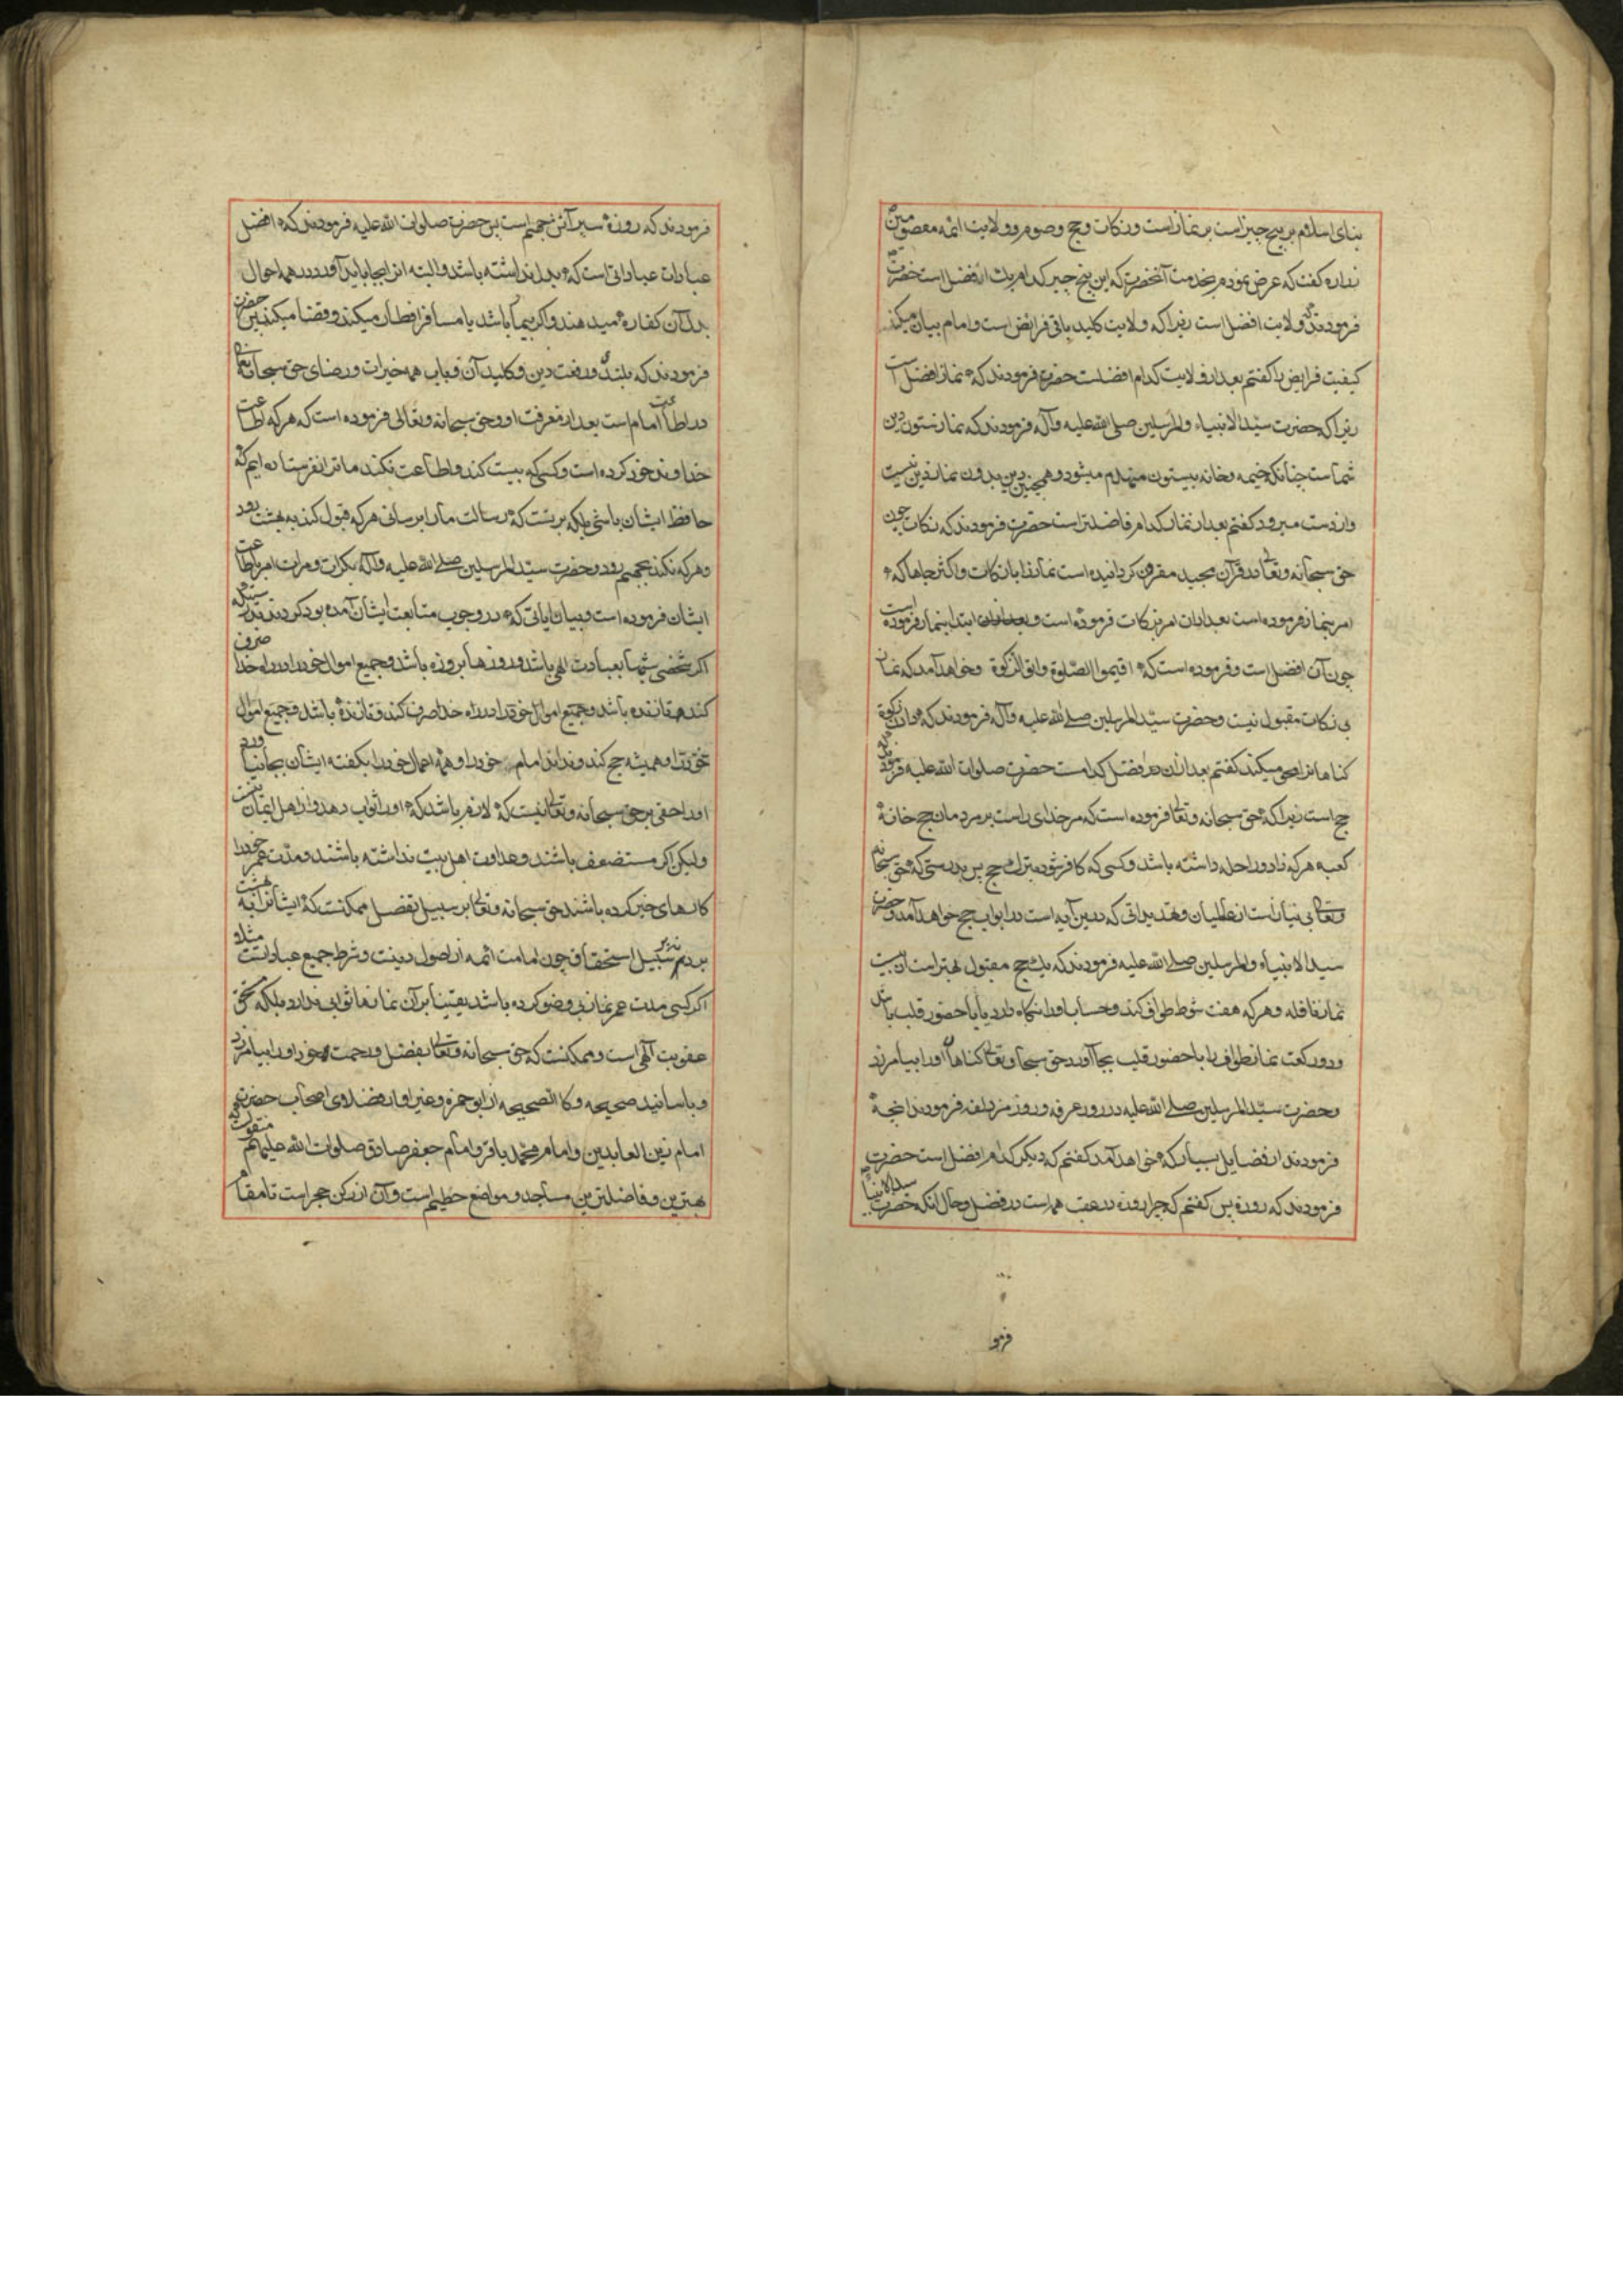 بنای اسلام بر پنج چیز است بر نماز است و زکات و حج و صوم و ولایت ائمه معصومین
زراره گفت که عرض نمودم بخدمت آنحضرت که این پنج چیز کدام یک افضل است حضرت
فرمودند که ولایت افضل است زیرا که ولایت کلید باقی فرایض است و امام بیان میکند
کیفیت فرایض را گفتم بعد از ولایت کدام افضلست حضرت فرمودند که نماز افضل است
زیرا که حضرت سیّد الانبیاء والمرسلین صلی الله علیه وآله فرمودند که نماز ستون دین
شماست چنانکه خیمه و خانه بیستون منهدم میشود و همچنین دین بدون نماز دین نیست
و از دست میرود کفتم بعد از نماز کدام فاضلتر است حضرت فرمودند که زکات چون
حق سبحانه وتعالی در قرآن مجید مقرون کردانیده است نماز را با زکات و اکثر جاها که
امر بنماز فرموده است بعد از ان امر بزکات فرموده است و ابتدا بنماز فرموده است
چون آن افضل است و فرموده است که اقیموا الصّلوة واتوا الزکوة و خواهد آمد که نماز
بی زکات مقبول نیست و حضرت سیّد المرسلین صلی الله علیه وآله فرمودند که دادن زکوة
کناهانرا محو میکند کفتم بعد از ان در فضل کدامست حضرت صلوات الله علیه فرمودند که
حج است زیرا که حق سبحانه وتعالی فرموده است که مر خدای راست بر مردمان حج خانهٔ
کعبه هر که زاد و راحله داشته باشد و کسی که کافر شود بترک حج پس بدرستی که حق سبحانه
وتعالی بی نیاز است از عالمیان و تهدیداتی که درین آیه است در ابواب حج خواهد آمد و حضرت
سید الانبیاء والمرسلین صلی الله علیه فرمودند که یک حج مقبول بهتر است از بیست
نماز نافله و هر که هفت شوط طواف کند و حساب او را نکاه دارد یا با حضور قلب باشد
و دو رکعت نماز طواف را با حضور قلب بجا آورد حق سبحانه وتعالی کناهان او را بیامرزد
و حضرت سیّد المرسلین صلی الله علیه در روز عرفه و روز مزدلفه فرمودند آنچه
فرمودند از فضایل بسیار که خواهد آمد کفتم که دیکر کدام افضل است حضرت
فرمودند که روزه پس کفتم که چرا روزه در عقب همه است در فضل و حال آنکه حضرت سید الانبیا
فرمو
فرمودند که روزه سپر آتش جهنم است پس حضرت صلوات الله علیه فرمودند که افضل
عبادات عباداتی است که بدل نداشته باشد و البته انرا بجا باید آورد در همه احوال
بدل آن کفاره میدهند و اکر بیمار باشد یا مسافر افطار میکند و قضا میکند پس حضرت
فرمودند که بلندی و رفعت دین و کلید آن و باب همه خیرات و رضای حق سبحانه وتعالی
در اطاعت امام است بعد از معرفت او و حق سبحانه وتعالی فرموده است که هر که اطاعت
خداوند خود کرده است و کسی که کند و اطاعت نکند ما ترا نفرستاده ایم که
حافظ ایشان باشی بلکه بر تست که رسالت ما را برسانی هر که قبول کند به بهشت رود
و هر که نکند بجهنم رود و حضرت سید المرسلین صلی الله علیه وآله بکرات و مرات امر باطاعت
ایشان فرموده است و بیان ایاتی که در وجوب متابعت ایشان آمده بود کردند بدرستیکه
اکر شخصی شبها بعبادت الهی باشد و روزها بروزه باشد و جمیع اموال خود را در راه خدا صرف
کند و جمیع اموال خود را در راه خدا صرف کند و باشد و جمیع اموال
خود را و همیشه حج کند و نداند امام خود را و همه اعمال خود را بکفته ایشان بجا نیاورد
او را حقی بر حق سبحانه وتعالی نیست که لازم باشد که او را ثواب دهد و از اهل ایمان نیست
ولیکن اکر مستضعف باشند و عداوت اهل بیت نداشته باشند و مدت عمر خود را
کارهای خیر کرده باشند حق سبحانه وتعالی بر سبیل تفضل ممکنست که ایشانرا به بهشت
برد نه بر سبیل استحقاق چون امامت ائمه از اصول دینست و شرط جمیع عباداتست مثلا
اکر کسی مدت عمر نماز بی وضو کرده باشد یقینا بر آن نمازها ثوابی ندارد بلکه مستحق
عقوبت الهی است و ممکنست که حق سبحانه وتعالی بفضل و رحمت خود او را بیامرزد
و باسانید صحیحه و کالصحیحه از ابو حمزه و غیر او از فضلای اصحاب حضرت
امام زین العابدین و امام محمد باقر و امام جعفر صادق صلوات الله علیهم منقولست که
بهترین و فاضلترین مساجد و مواضع حطیم است و آن از رکن حجر است تا مقام